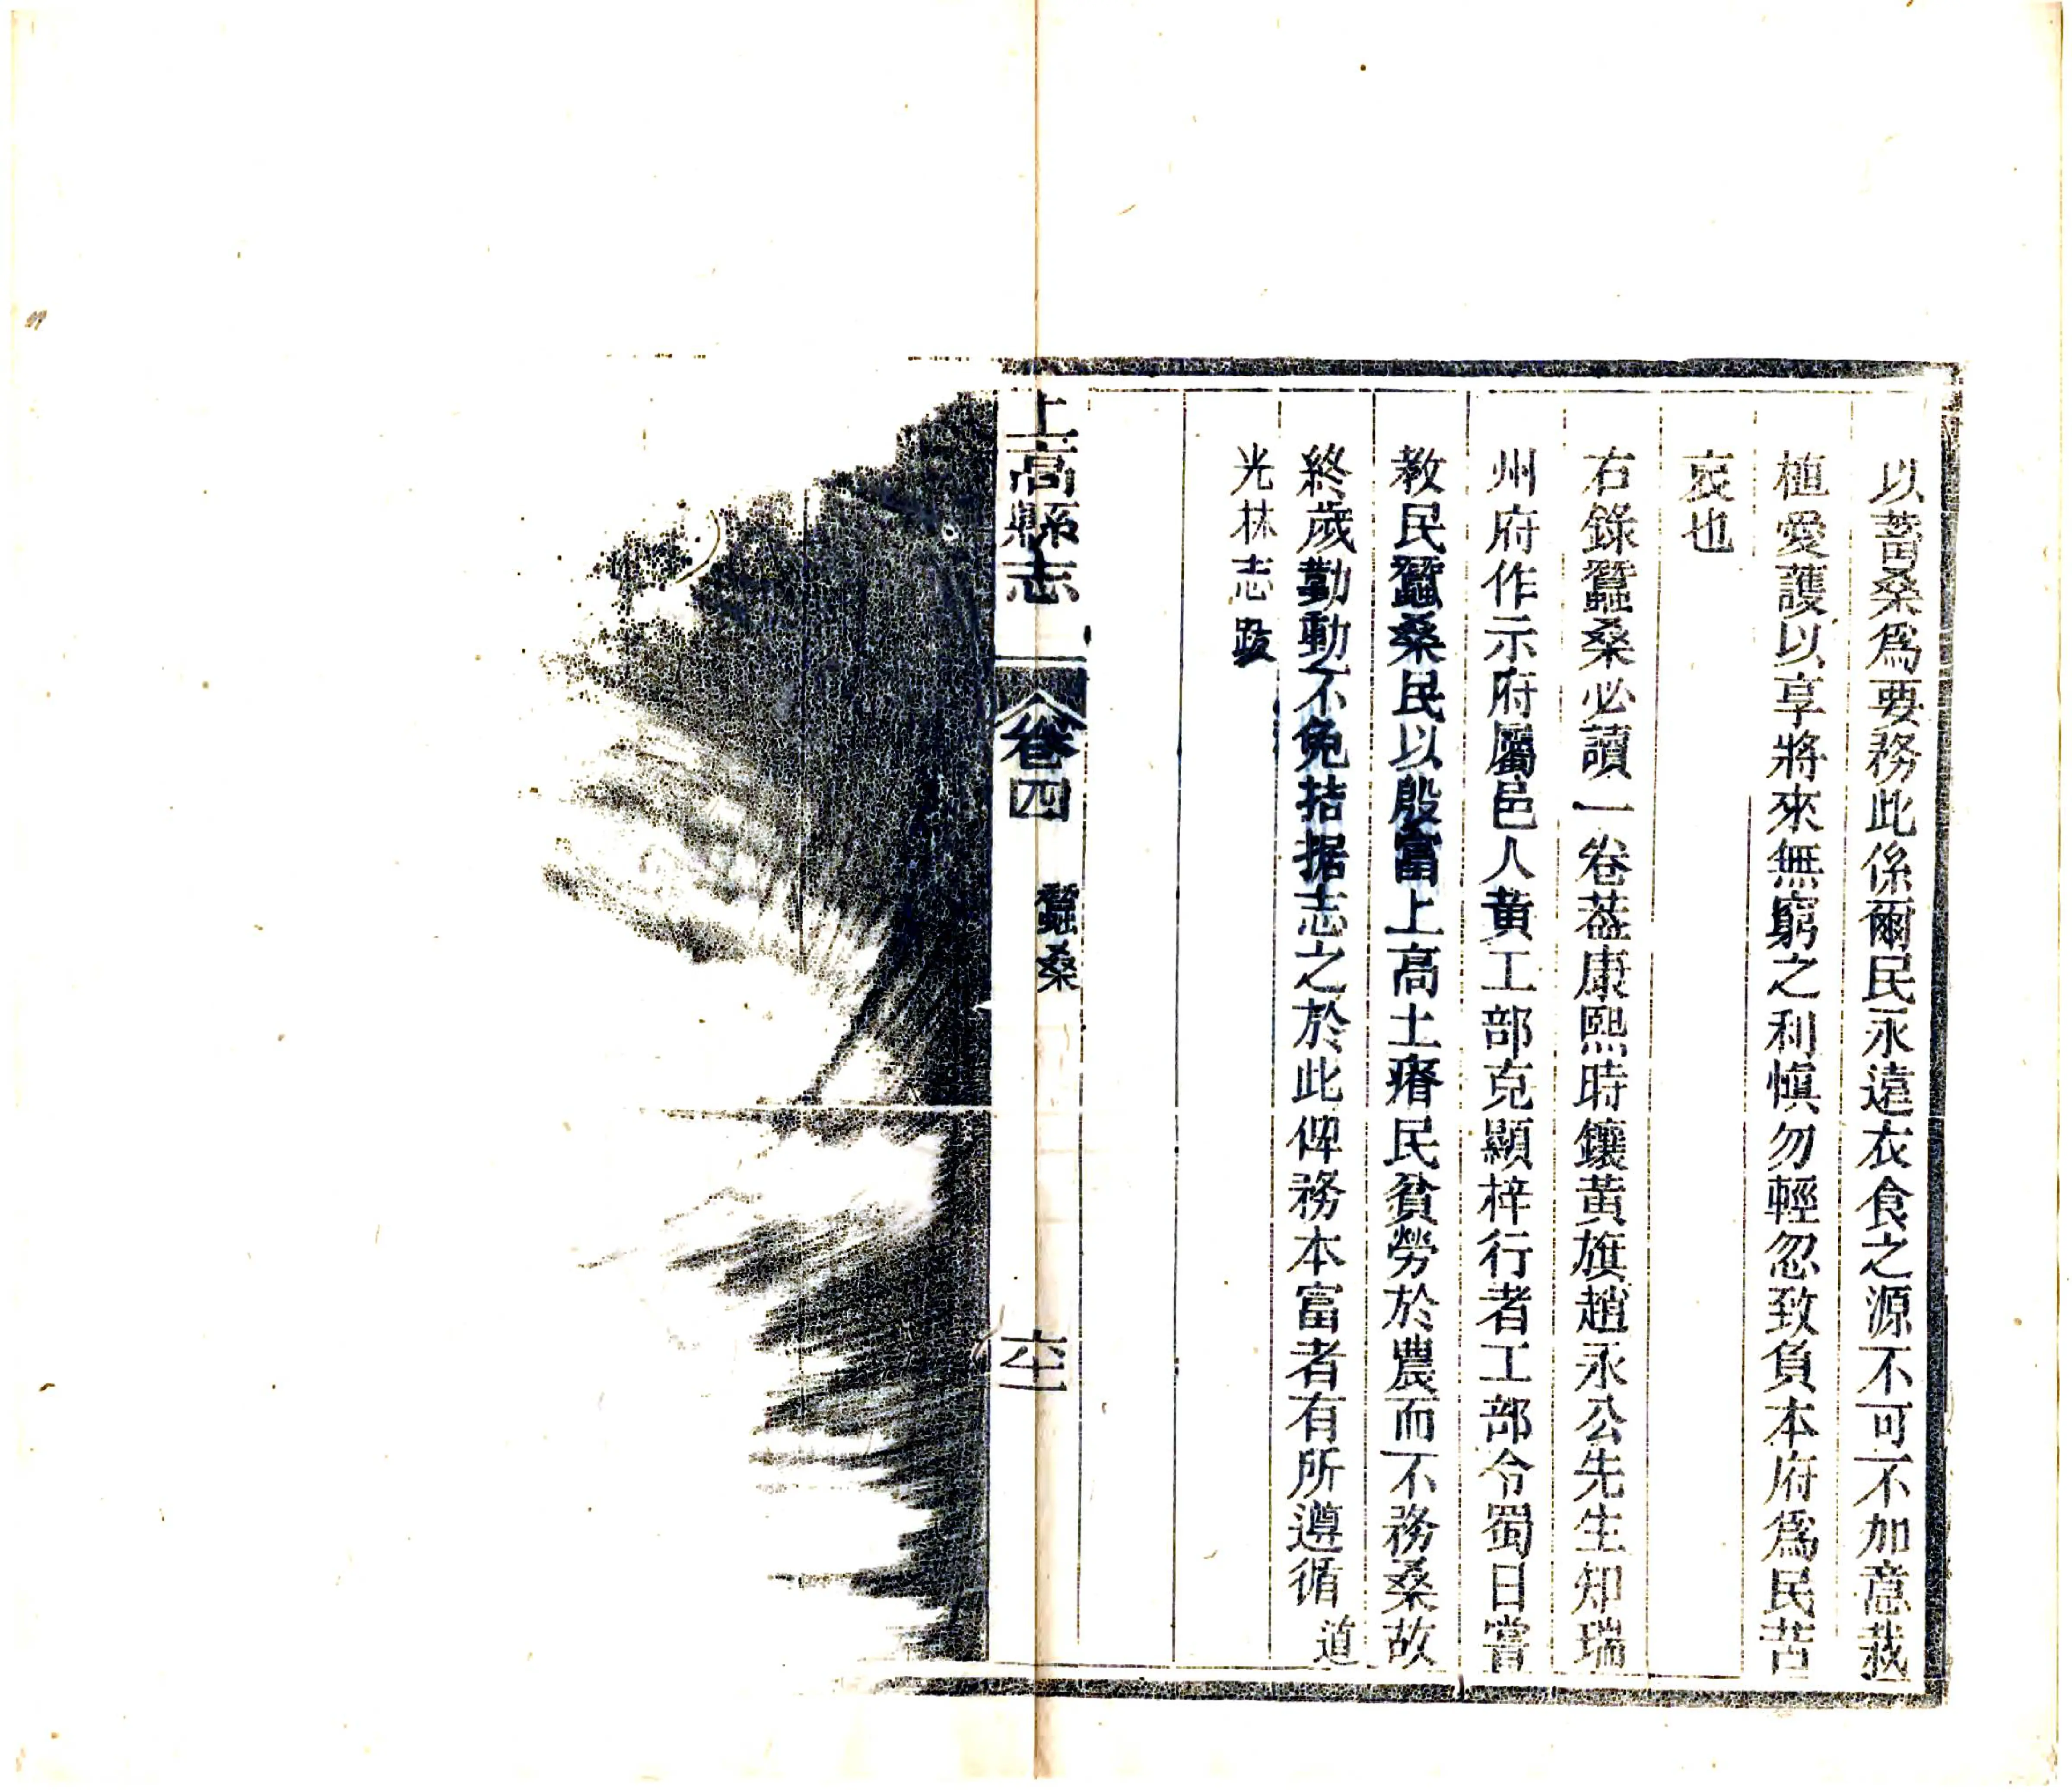 以蓄桑爲要務此係爾民永遠衣食之源不可不加意栽
植愛護以享將來無窮之利愼勿輕忽致負本府爲民苦
衷也
右錄蠶桑必讀一卷葢康熙時鑲黃旗趙永公先生知瑞
州府作示府屬邑人黃工部克顯梓行者工部令蜀日嘗
教民蠶桑民以殷富上高土瘠民貧勞於農而不務桑故
終歲勤動不免拮据志之於此俾務本富者有所遵循道
光林志跋
上高縣志
卷四
蠶桑